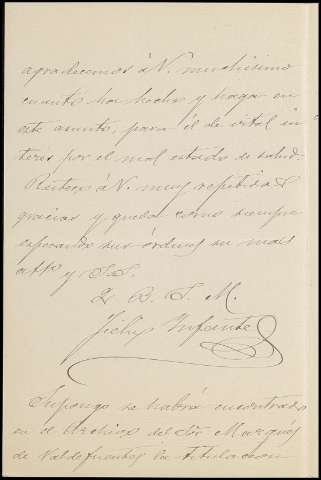 agradecemos á V. muchísimo
cuanto ha hecho y haga en
este asunto, para él de vital in
terés por el mal estado de salud.
Reitero á V. muy repetidas
gracias y quedo como siempre
esperando sus órdenes su mas
att.º y S.S.
Q. B. S. M.
Felix Infante
Supongo se habrá encontrado
en el Archivo del Sor. Marqués
de Valdefuentes la titulación